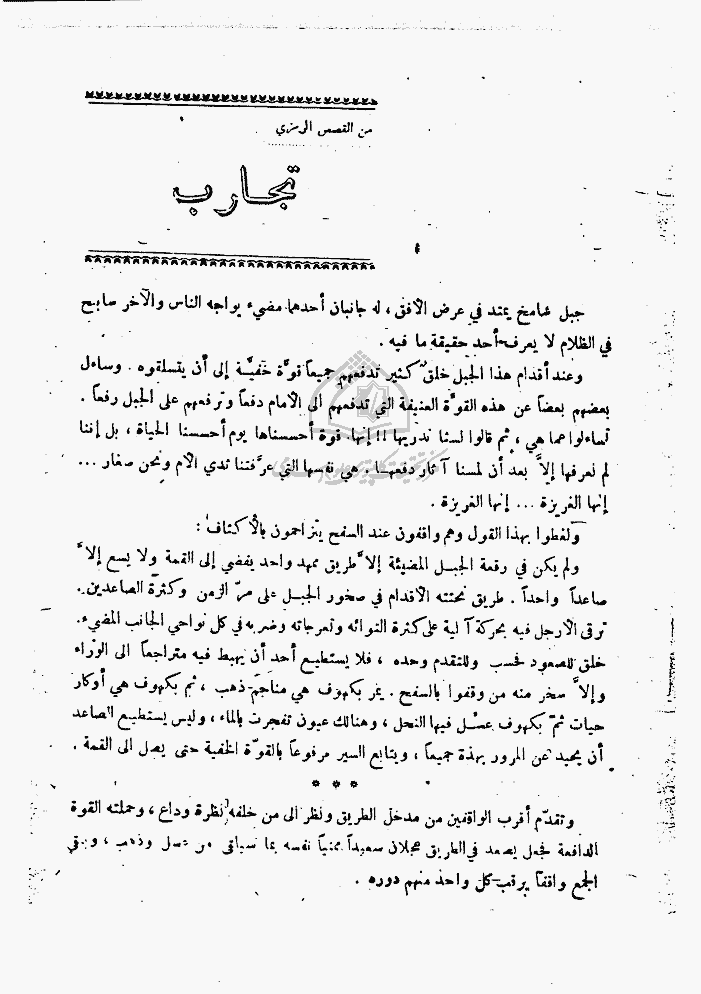 من القصص الرمزي
تجارب
جبل شامخ يمتد في عرض الأفق ، له جانبان أحدهما مضيء يواجه الناس والآخر سابح
في الظلام لا يعرف أحد حقيقة ما فيه .
وعند أقدام هذا الجبل خلق كثير تدفعهم جميعاً قوة خفيَّة إلى أن يتسلقوه . وساءل
بعضهم بعضاً عن هذه القوَّة العنيفة التي تدفعهم الى الأمام دفعاً وترفعهم على الجبل رفعاً .
تساءلوا عما هي ، ثم قالوا لسنا ندريها !! إنها قوة أحسسناها يوم أحسسنا الحياة ، بل إننا
لم نعرفها إلاَّ بعد أن لمسنا آثار دفعهـا . هي نفسها التي عرَّفتنا ثدي الأم ونحن صغار ...
إنها الغريزة ... إنها الغريزة .
ولغطوا بهذا القول وهم واقفون عند السفح يتزاحمون بالأكتاف :
ولم يكن في رقعة الجبـل المضيئة إلاَّ طريق ممهد واحد يفضي إلى القمة ولا يسع إلاَّ
صاعداً واحداً . طريق نحتته الأقدام في صخور الجبـل على مرّ الزمن وكثرة الصاعدين .
ترقى الأرجل فيه بحركة آلية على كثرة التوائه وتعرجاته وضربه في كل نواحي الجانب المضيء .
خلق للصعود فحسب وللتقدم وحده ، فلا يستطيع أحد أن يهبط فيه متراجعاً الى الوراء
وإلاَّ سخر منه من وقفوا بالسفح . يمر بكهوف هي مناجم ذهب ، ثم بكهوف هي أوكار
حيات ثمّ بكهوف عسْل فيها النحل ، وهنالك عيون تفجرت بالماء ، وليس يستطيـع الصاعد
أن يحيد عن المرور بهذة جميعاً ، ويتابع السير مرفوعاً بالقوّة الخفية حتى يصل الى القمة .
* * *
وتقدّم أقرب الواقفين من مدخل الطريق ونظر الى من خلفه نظرة وداع ، وحملته القوة
الدافعة فجعل يصعد في الطريق عجلان سعيداً ممنياً نفسه بما سيلاقي من عسل وذهب ، وبقي
الجمع واقفاً يرقب كل واحد منهم دوره .